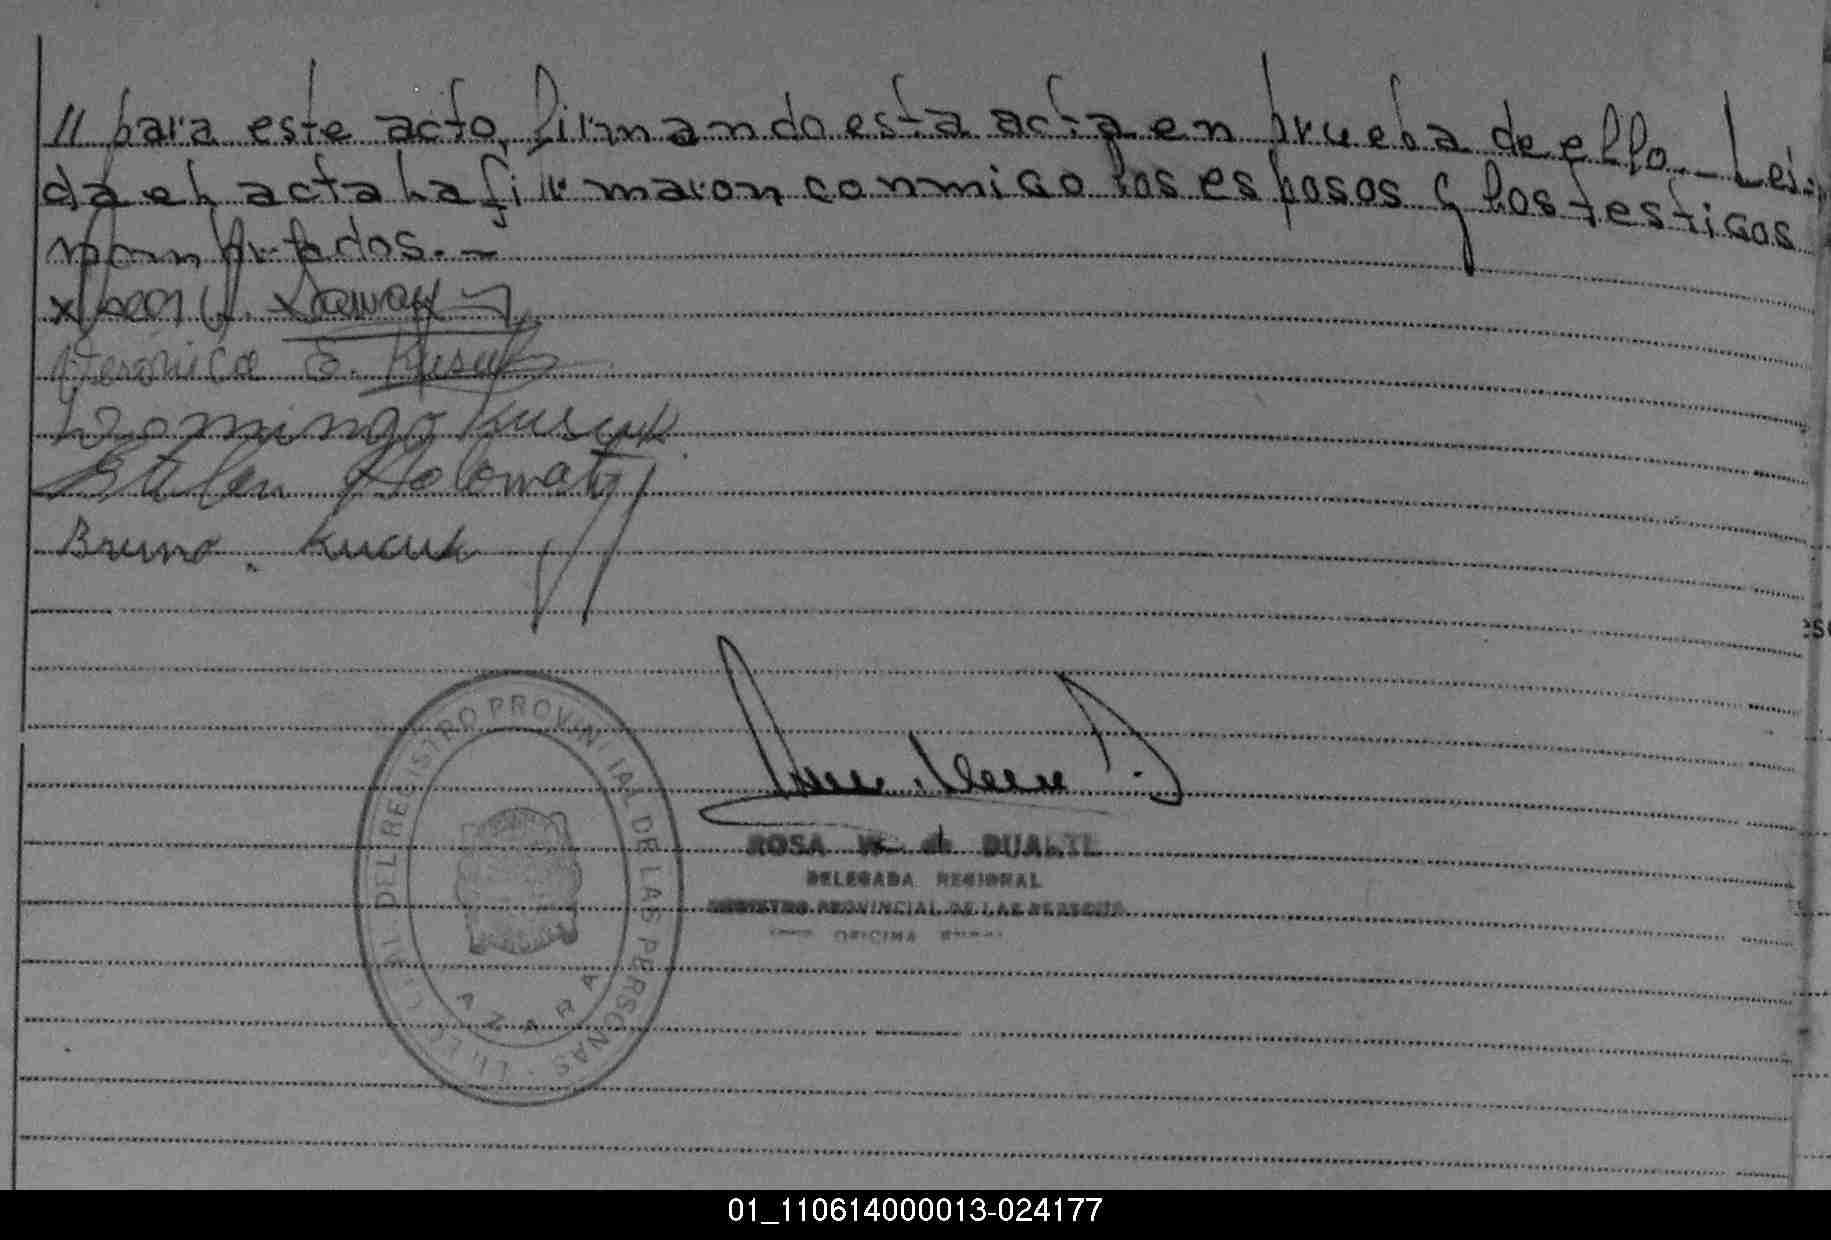 // para este acto, firmando esta acta en prueba de ello.- Leí-
da el acta la firmaron conmigo los esposos y los testigos
nombrados.-
Verónica E. Kusuk
Domingo Kusuk
Bruno. Kucuk
DEL REGISTRO PROVINCIAL DE LAS PERSONAS
AZARA
ROSA W. de DUARTE
DELEGADA REGIONAL
REGISTRO PROVINCIAL DE LAS PERSONAS
OFICINA
01_110614000013-024177